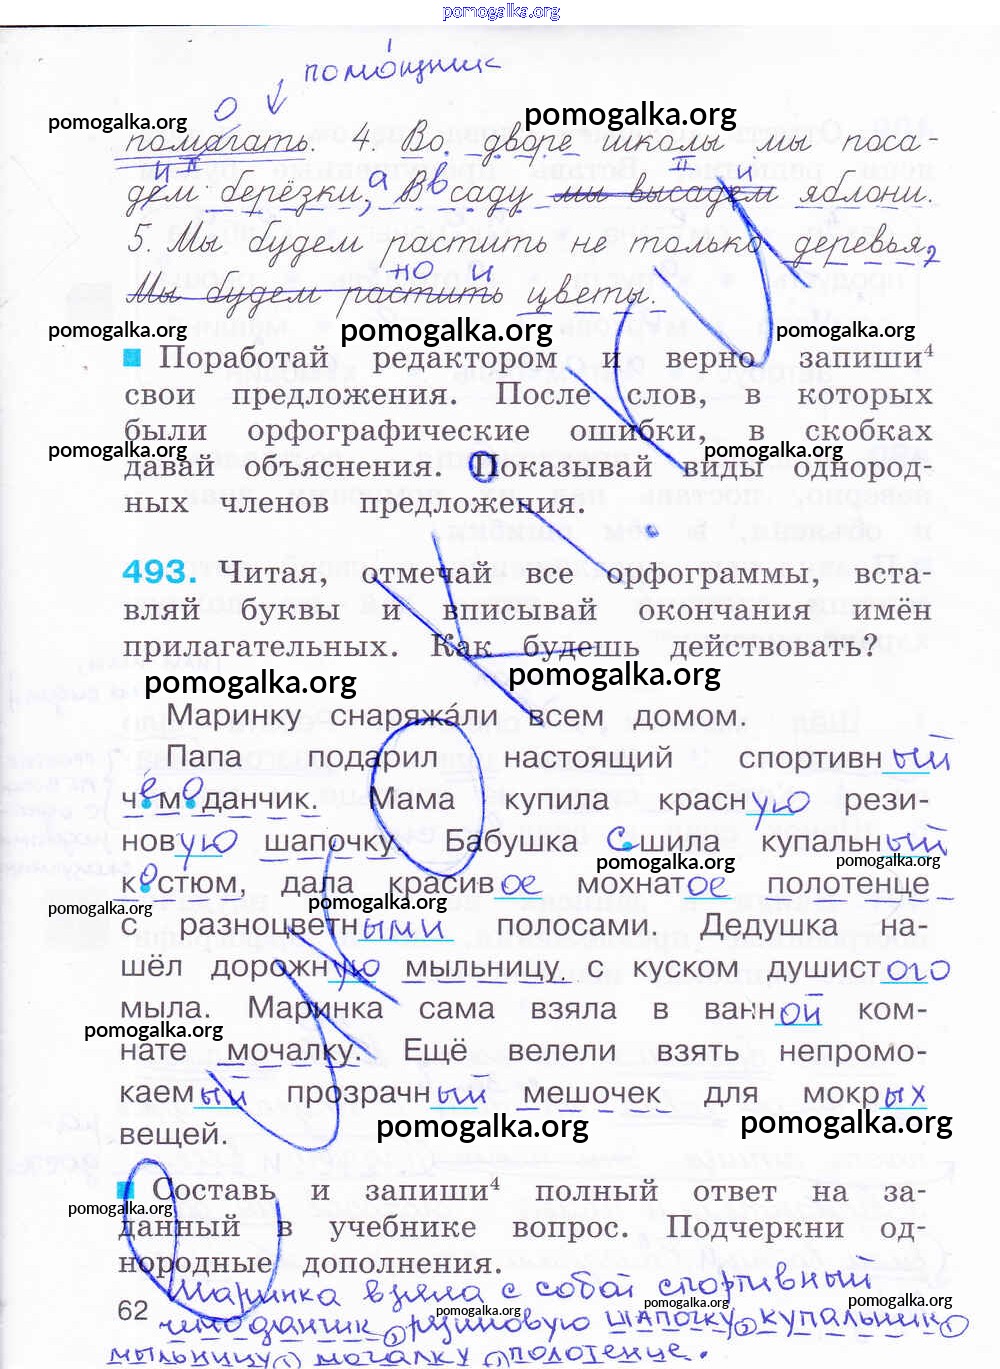 pomogalka.org
помощник
о
pomogalka.org pomogalka.org
помагать. 4. Во дворе школы мы поса-
и и
дем берёзки, а Вв саду мы высадем яблони.
5. Мы будем растить не только деревья,
но и
Мы будем растить цветы.
pomogalka.org pomogalka.org pomogalka.org
Поработай редактором и верно запиши⁴
свои предложения. После слов, в которых
были орфографические ошибки, в скобках
pomogalka.org pomogalka.org
давай объяснения. Показывай виды однород-
ных членов предложения.
493. Читая, отмечай все орфограммы, вста-
вляй буквы и вписывай окончания имён
прилагательных. Как будешь действовать?
pomogalka.org pomogalka.org
Маринку снаряжа́ли всем домом.
Папа подарил настоящий спортивный
чемоданчик. Мама купила красную рези-
новую шапочку. Бабушка сшила купальный
pomogalka.org pomogalka.org
костюм, дала красивое мохнатое полотенце
pomogalka.org pomogalka.org
с разноцветными полосами. Дедушка на-
шёл дорожную мыльницу с куском душистого
мыла. Маринка сама взяла в ванной ком-
pomogalka.org
нате мочалку. Ещё велели взять непромо-
каемый прозрачный мешочек для мокрых
pomogalka.org pomogalka.org
вещей.
Составь и запиши⁴ полный ответ на за-
pomogalka.org pomogalka.org
данный в учебнике вопрос. Подчеркни од-
нородные дополнения.
Маринка взяла с собой спортивный
62 pomogalka.org pomogalka.org pomogalka.org
чемоданчик, резиновую шапочку, купальник,
мыльницу, мочалку, полотенце.